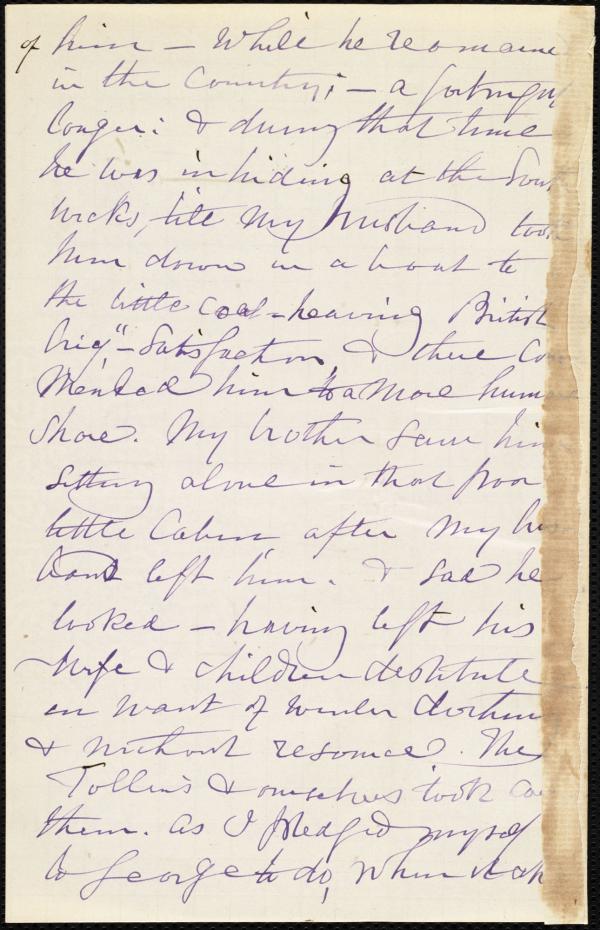 of him – while he remaine
in the Country; – a fortnight
longer: & during that time
he was in hiding at the Sout
wicks, till my husband took
him down in a boat to
the little coal-heaving British
brig" – Satisfaction & there Com
mended him to a more humane
Shore. My brother saw him
sitting alone in that poor
little Cabin after my hus
band left him. & sad he
looked – having left his
wife & children destitute
in want of winter clothing
& without resource. The
Tollers & ourselves took ca
them. as I pledged myself
to George to do, when